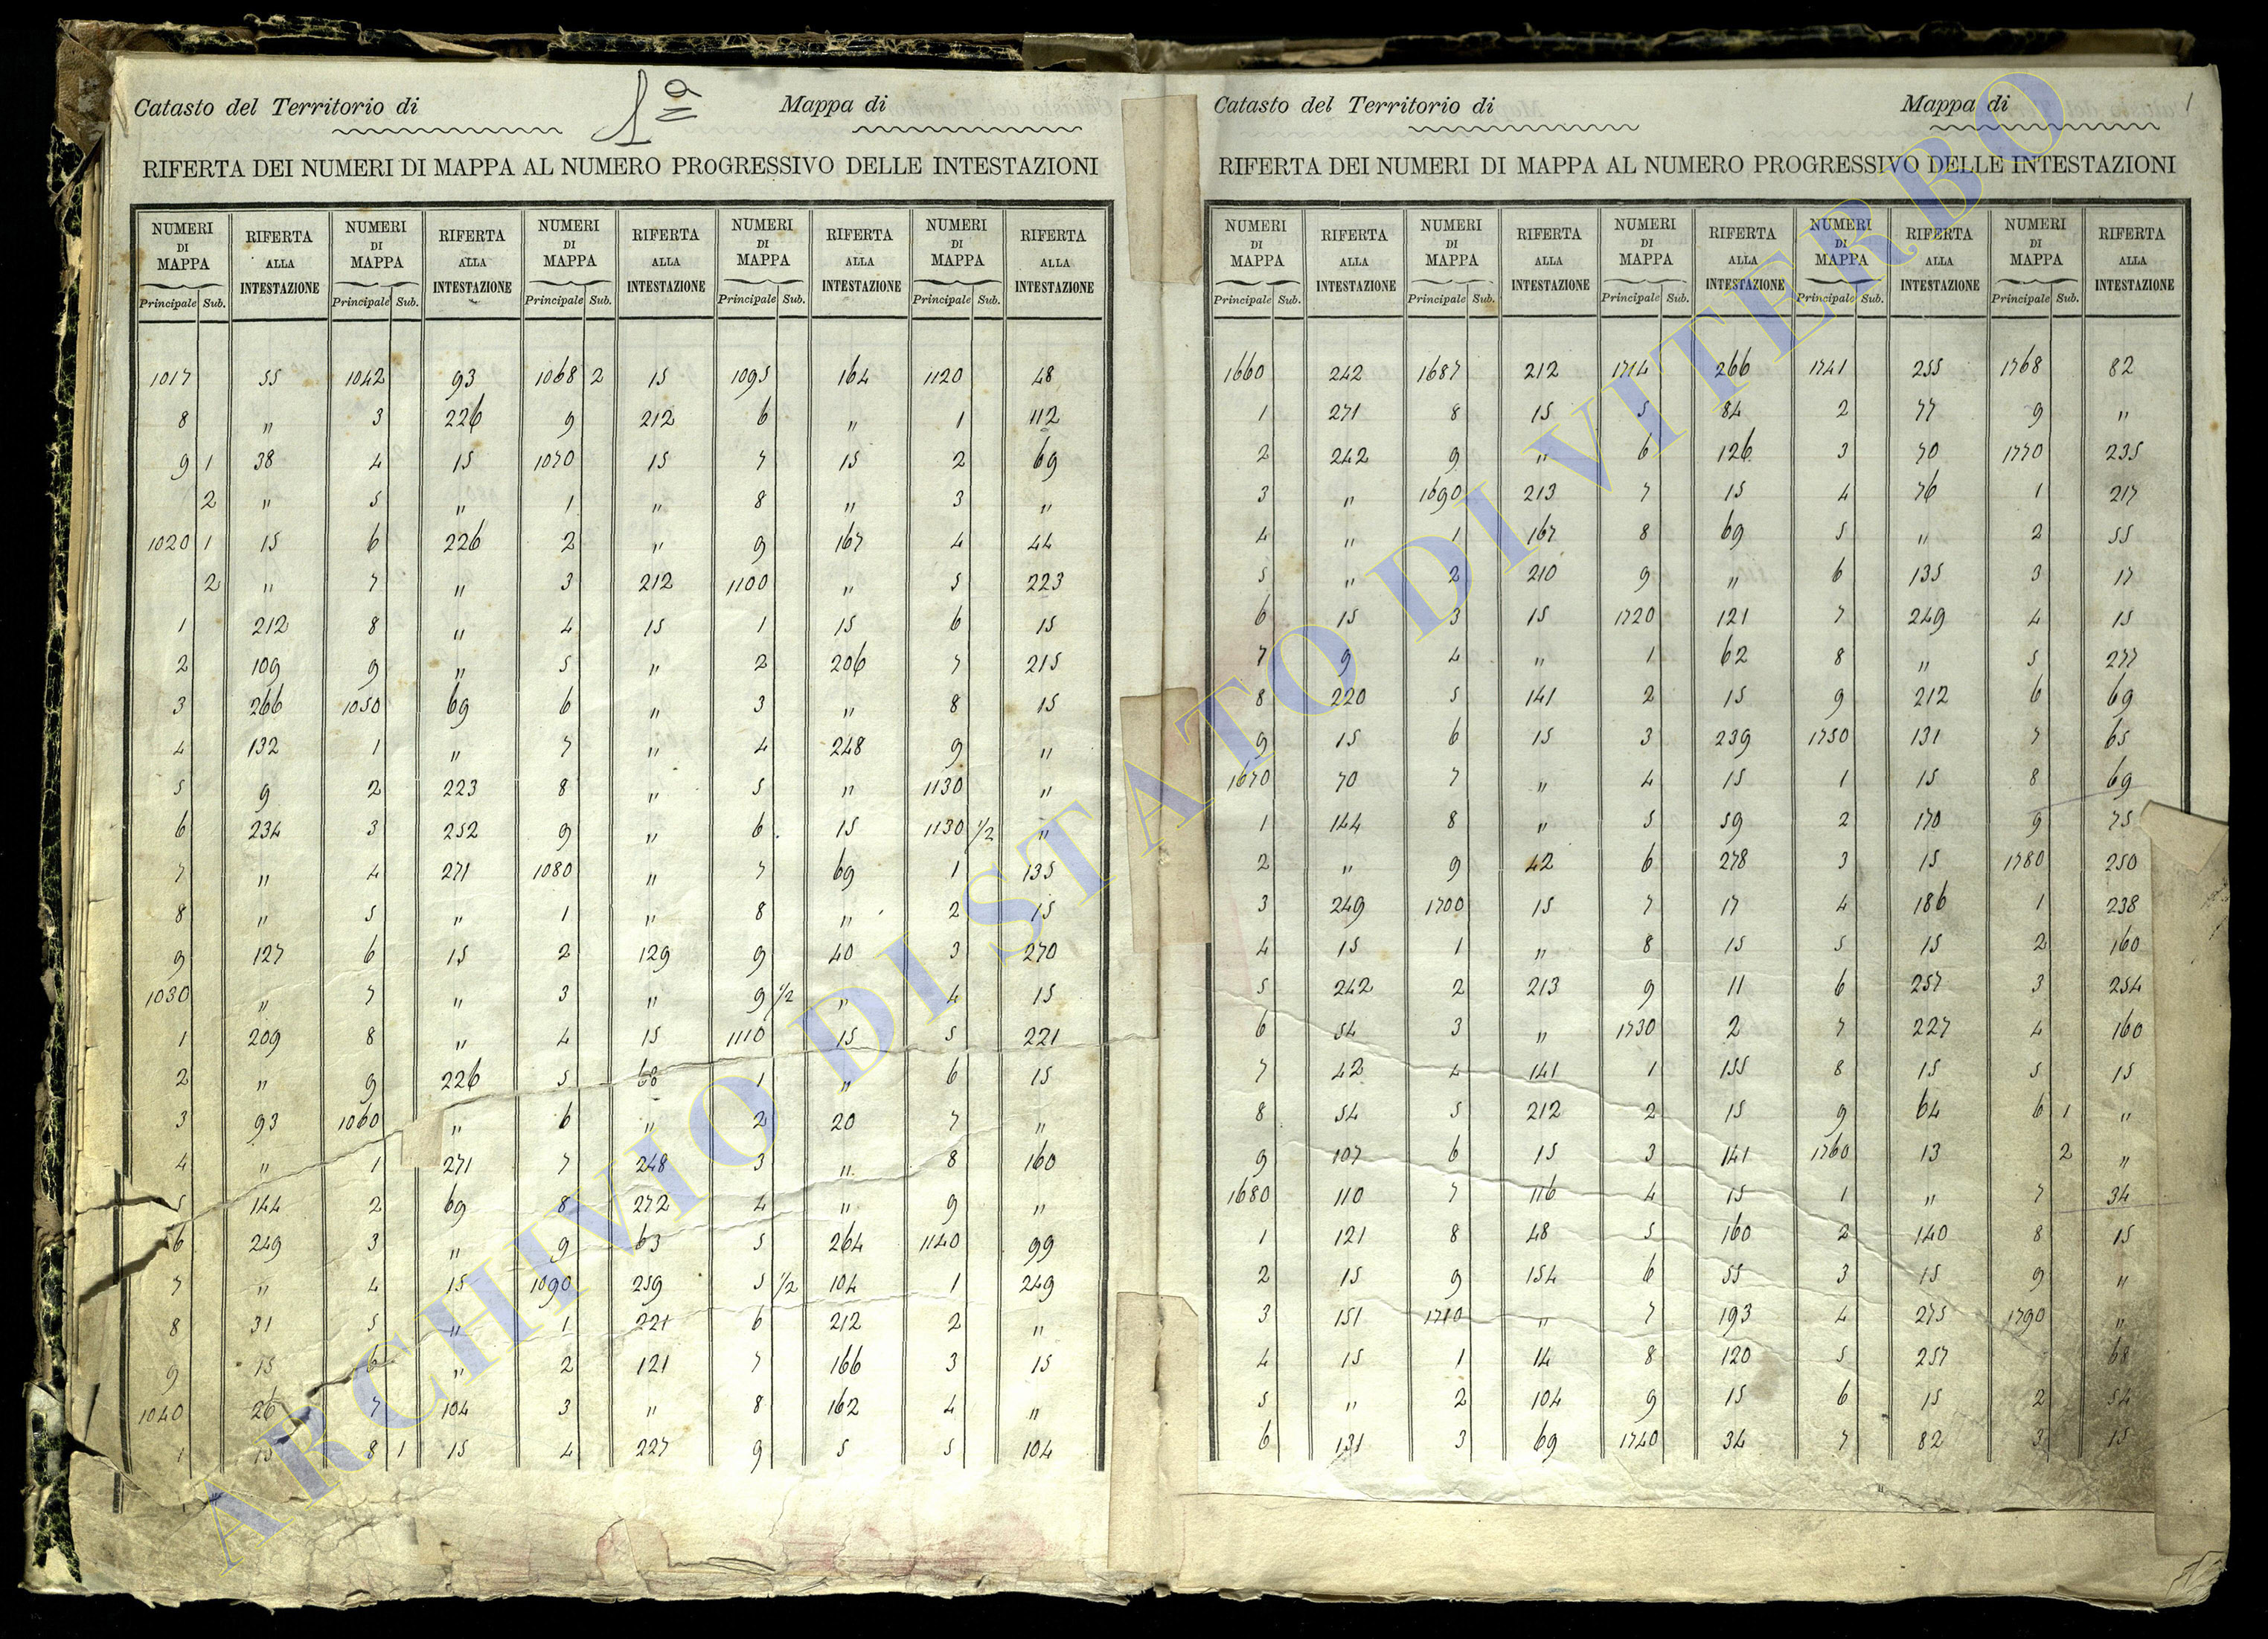 Catasto del Territorio di 1ª Mappa di
RIFERTA DEI NUMERI DI MAPPA AL NUMERO PROGRESSIVO DELLE INTESTAZIONI
NUMERI DI MAPPA RIFERTA ALLA INTESTAZIONE NUMERI DI MAPPA RIFERTA ALLA INTESTAZIONE NUMERI DI MAPPA RIFERTA ALLA INTESTAZIONE NUMERI DI MAPPA RIFERTA ALLA INTESTAZIONE NUMERI DI MAPPA RIFERTA ALLA INTESTAZIONE
Principale Sub. Principale Sub. Principale Sub. Principale Sub. Principale Sub.
1017 55 1042 93 1068 2 15 1095 164 1120 48
8 " 3 226 9 212 6 " 1 112
9 1 38 4 15 1070 15 7 15 2 69
2 " 5 " 1 " 8 " 3 "
1020 1 15 6 226 2 " 9 167 4 44
2 " 7 " 3 212 1100 " 5 223
1 212 8 " 4 15 1 15 6 15
2 109 9 " 5 " 2 206 7 215
3 266 1050 69 6 " 3 " 8 15
4 132 1 " 7 " 4 248 9 "
5 9 2 223 8 " 5 " 1130 "
6 234 3 252 9 " 6 15 1130 1/2 "
7 " 4 271 1080 " 7 69 1 135
8 " 5 " 1 " 8 " 2 15
9 127 6 15 2 129 9 40 3 270
1030 " 7 " 3 " 9 1/2 " 4 15
1 209 8 " 4 15 1110 15 5 221
2 " 9 226 5 68 1 " 6 15
3 93 1060 " 6 " 2 20 7 "
4 " 1 271 7 248 3 " 8 160
5 144 2 69 8 272 4 " 9 "
6 249 3 " 9 63 5 264 1140 99
7 " 4 15 1090 259 5 1/2 104 1 249
8 31 5 " 1 221 6 212 2 "
9 15 6 " 2 121 7 166 3 15
1040 26 7 104 3 " 8 162 4 "
1 15 8 1 15 4 227 9 5 5 104
Catasto del Territorio di Mappa di 1
RIFERTA DEI NUMERI DI MAPPA AL NUMERO PROGRESSIVO DELLE INTESTAZIONI
NUMERI DI MAPPA RIFERTA ALLA INTESTAZIONE NUMERI DI MAPPA RIFERTA ALLA INTESTAZIONE NUMERI DI MAPPA RIFERTA ALLA INTESTAZIONE NUMERI DI MAPPA RIFERTA ALLA INTESTAZIONE NUMERI DI MAPPA RIFERTA ALLA INTESTAZIONE
Principale Sub. Principale Sub. Principale Sub. Principale Sub. Principale Sub.
1660 242 1687 212 1714 266 1741 255 1768 82
1 271 8 15 5 84 2 77 9 "
2 242 9 " 6 126 3 70 1770 235
3 " 1690 213 7 15 4 76 1 217
4 " 1 167 8 69 5 " 2 55
5 " 2 210 9 " 6 135 3 17
6 15 3 15 1720 121 7 249 4 15
7 9 4 " 1 62 8 " 5 277
8 220 5 141 2 15 9 212 6 69
9 15 6 15 3 239 1750 131 7 65
1670 70 7 " 4 15 1 15 8 69
1 144 8 " 5 59 2 170 9 75
2 " 9 42 6 278 3 15 1780 250
3 249 1700 15 7 17 4 186 1 238
4 15 1 " 8 15 5 15 2 160
5 242 2 213 9 11 6 257 3 254
6 54 3 " 1730 2 7 227 4 160
7 42 4 141 1 155 8 15 5 15
8 54 5 212 2 15 9 64 6 1 "
9 107 6 15 3 141 1760 13 2 "
1680 110 7 116 4 15 1 " 7 34
1 121 8 48 5 160 2 140 8 15
2 15 9 154 6 55 3 15 9 "
3 151 1710 " 7 193 4 275 1790 "
4 15 1 14 8 120 5 257 68
5 " 2 104 9 15 6 15 2 54
6 131 3 69 1740 34 7 82 3 15
ARCHIVIO DI STATO DI VITERBO